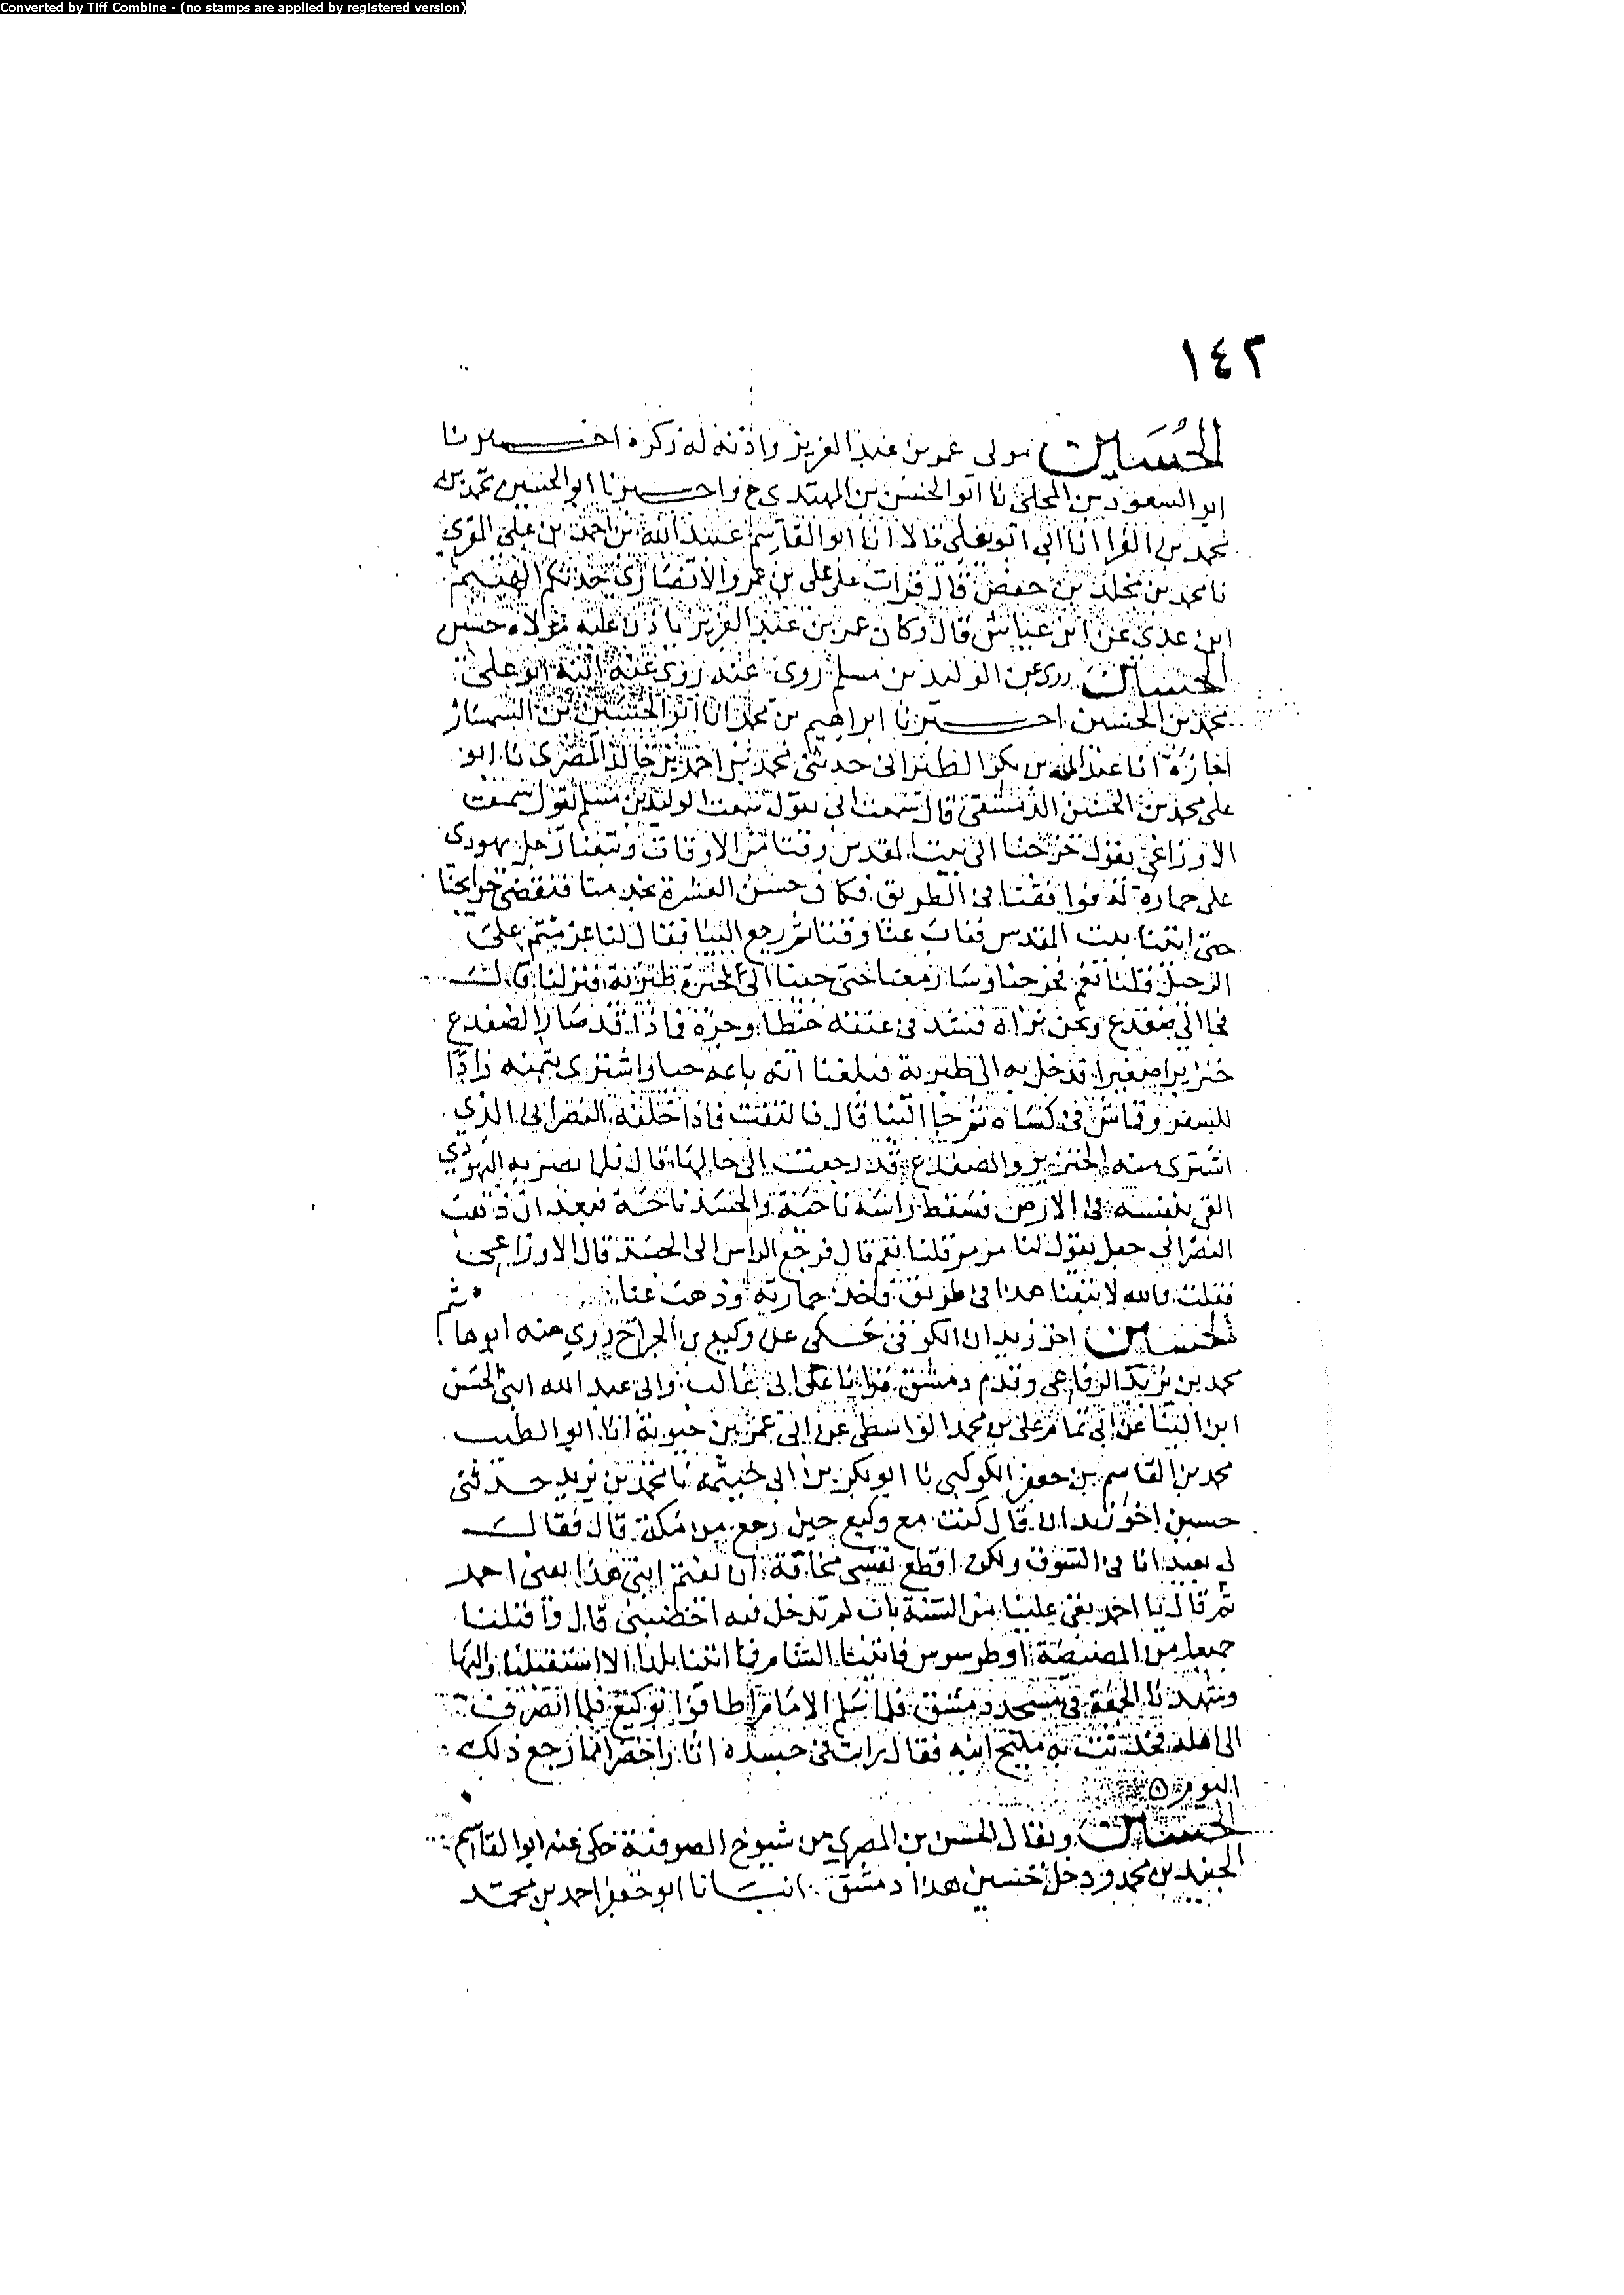 Converted by Tiff Combine - (no stamps are applied by registered version)
١٤٣
الحُسَين مولى عمر بن عبد العزيز واذنه له ذكر اخبرنا
ابو السعود بن المجلى نا ابو الحسين بن المهتدى ح واخبرنا ابو الحسين محمد بن
محمد بن الفرا انا ابى ابو يعلى قالا انا ابو القاسم عبيد الله بن احمد بن على المقرى
نا محمد بن مخلد بن حفص قال قرات على على بن عمرو الانصارى حدثكم الهيثم
ابن عدى عن ابن عياش قال وكان عمر بن عبد العزيز ياذن عليه مولاه حسين
الحسين روى عن الوليد بن مسلم روى عنه روى عنه ابنه ابو على
محمد بن الحسين اخبرنا ابراهيم بن محمد انا ابو الحسين بن السمسار
اجازة انا عبد الله بن بكر الطبرانى حدثنى محمد بن احمد بن خالد المصرى نا ابو
على محمد بن الحسين الدمشقى قال سمعت ابى يقول سمعت الوليد بن مسلم يقول سمعت
الاوزاعى يقول خرجنا الى بيت المقدس وقتا من الاوقات وتبعنا رجل يهودى
على حمارة له فوافقنا فى الطريق فكان حسن العشرة يخدمنا فنقضى حوايجنا
حتى اتينا بيت المقدس فغاب عنا وقتا ثم رجع الينا فقال لنا عزمتم على
الرحيل قلنا نعم فخرجنا وسار معنا حتى جينا الى بحيرة طبرية فنزلنا قال
فجا الى ضفدع ونحن نراه فشد فى عنقه خيطا وجره فاذا قد صار الضفدع
خنزيرا صغيرا قدخل به الى طبرية فبلغنا انه باعه حيا واشترى بثمنه زادًا
للسفر وقماش فى كساه ثم جا الينا قال فالتفت فاذا خلفه النصرانى الذى
اشترى منه الخنزير والضفدع قد رجعت الى حالها قال فلما بصر به اليهودي
القى بنفسه الى الارض فسقط راسه ناحية والجسد ناحية فبعد ان ذهب
النصرانى جعل يقول لنا مر مر قلنا نعم قال فرجع الراس الى الجسد قال الاوزاعى
فقلت والله لا يتبعنا هذا فى طريق فاخذ حمارته وذهب عنا
الحسين اخو زيدان الكوفى حكى عن وكيع بن الجراح روى عنه ابو هاشم
محمد بن يزيد الرفاعى وقدم دمشق قرانا على ابى غالب وابى عبد الله ابنى الحسن
ابن البنا عن ابى تمام على بن محمد الواسطى عن ابى عمر بن حيوية انا ابو الطيب
محمد بن القاسم بن جعفر الكوكبى نا ابو بكر بن ابى خيثمة نا محمد بن يزيد حدثنى
حسين اخو زيدان قال كنت مع وكيع حين رجع من مكة قال فقال
لى بعيد انا لى الشوق ولكن اقطع نفسى مخافة ان يغتم ابنى هذا يعنى احمد
ثم قال يا احمد بقى علينا من السنة باب لم تدخل فيه قال واقبلنا
جميعا من المصيصة او طرسوس فاتينا الشام فما اتينا بلدا الا استقبلنا واليها
وشهدنا الجمعة فى مسجد دمشق فلما سلم الامام اطافوا بوكيع فلما انصرف
الى اهله فحدثت به مليح ابنه فقال رايت فى جسده اثارا خضرا مما زحم ذلك
اليوم
الحسين ويقال الحسن بن المصرى من شيوخ الصوفية حكى عنه ابو القاسم
الجنيد بن محمد ودخل حسين هذا دمشق انبانا ابو جعفر احمد بن محمد